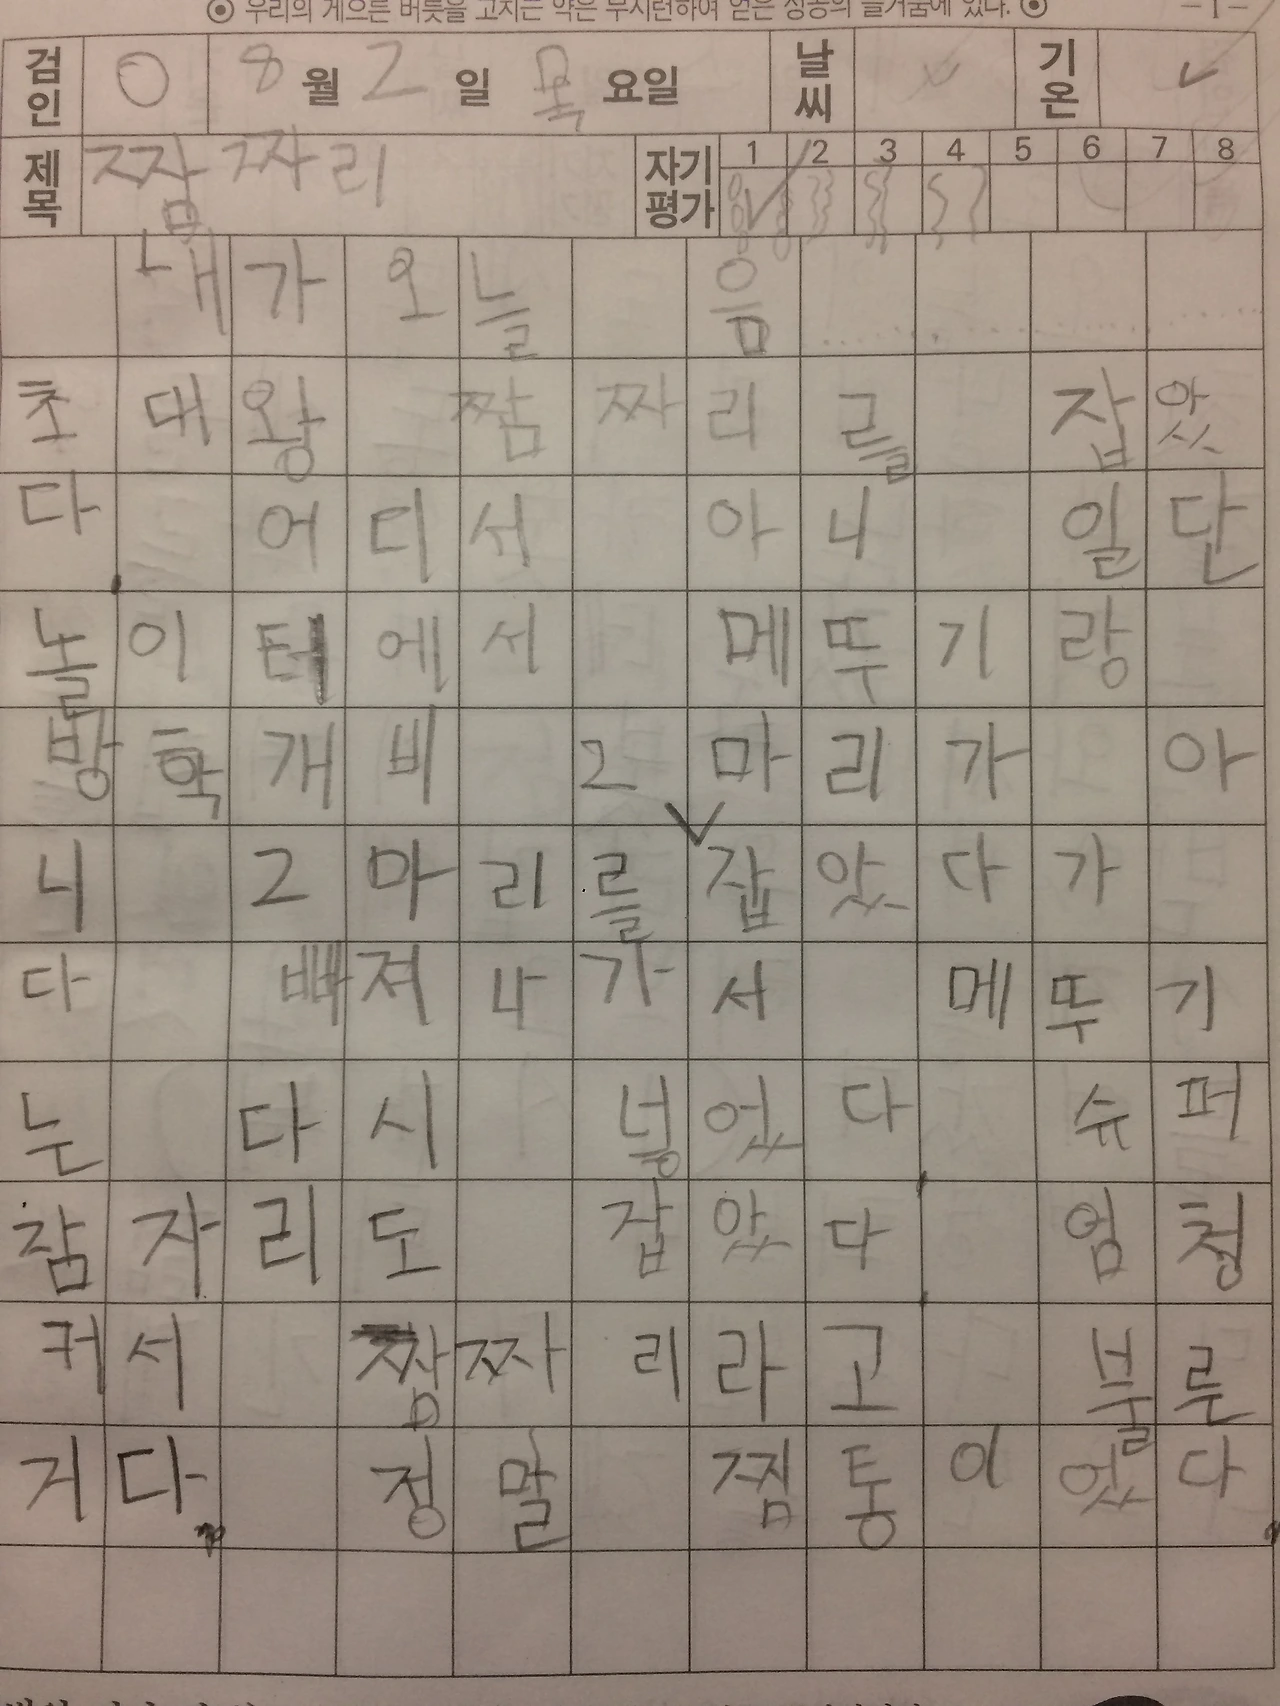 우리의 게으른 버릇을 고치는 약은 부지런하여 얻은 성공의 즐거움에 있다.
-1-
검인 0 8월 2일 목요일 날씨 기온
제목 짬짜리 자기평가 1 2 3 4 5 6 7 8
내가 오늘 음......
초대왕 짬짜리를 잡았
다. 어디서 아니 일단
놀이터에서 메뚜기랑
방학개비 2마리가 아
니 2마리를 잡았다가
다 빠져나가서 메뚜기
눈 다시 넣었다. 슈퍼
잠자리도 잡았다. 엄청
커서 짬짜리라고 불룬
거다. 정말 찜통이었다.